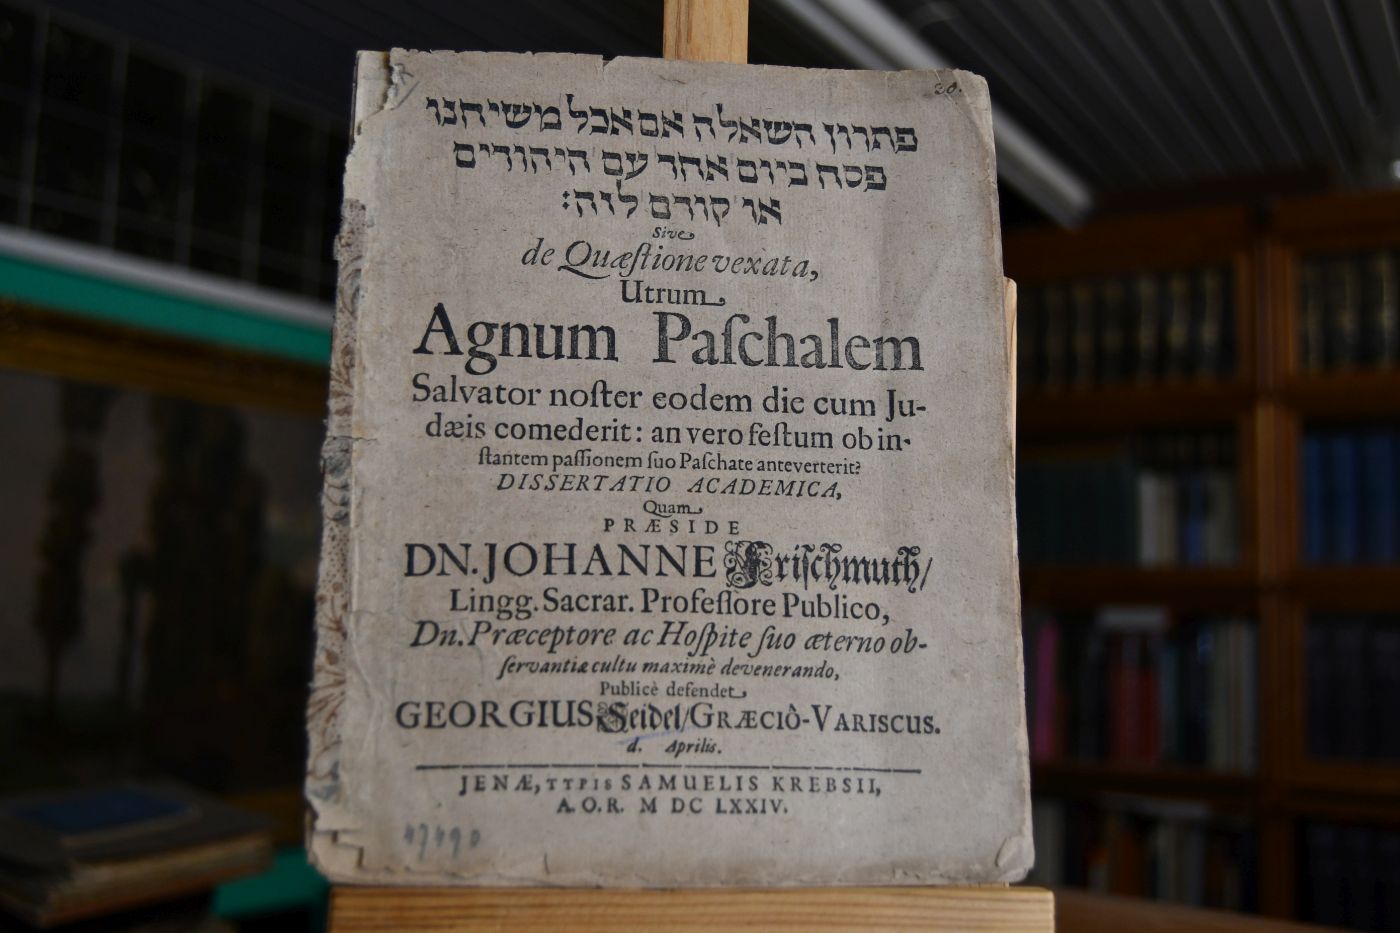 20.
פתרון השאלה אם אכל משיחנו
פסח ביום אחד עם היהודים
או קודם לזה:
Sive
de Quæſtione vexata,
Utrum
Agnum Paſchalem
Salvator noſter eodem die cum Ju-
dæis comederit: an vero feſtum ob in-
ſtantem paſſionem ſuo Paſchate anteverterit?
DISSERTATIO ACADEMICA,
Quam
PRÆSIDE
DN. JOHANNE Friſchmuth/
Lingg. Sacrar. Profeſſore Publico,
Dn. Præceptore ac Hoſpite ſuo æterno ob-
ſervantiæ cultu maximè devenerando,
Publicè defendet
GEORGIUS Seidel/ GRÆCIÔ-VARISCUS.
d. Aprilis.
JENÆ, TYPIS SAMUELIS KREBSII,
A. O. R. M DC LXXIV.